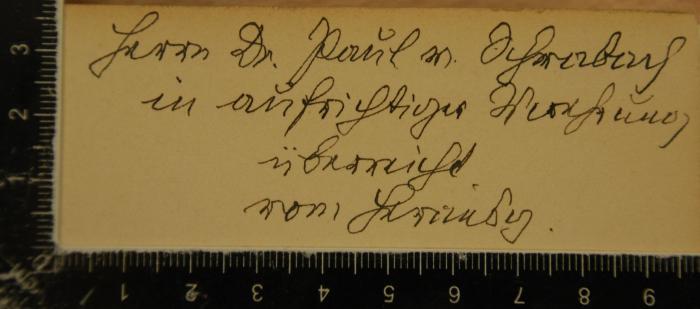 Herrn Dr. Paul v. Schwabach
in aufrichtiger Verehrung
überreicht
vom
3
2
1
1 2 3 4 5 6 7 8 9